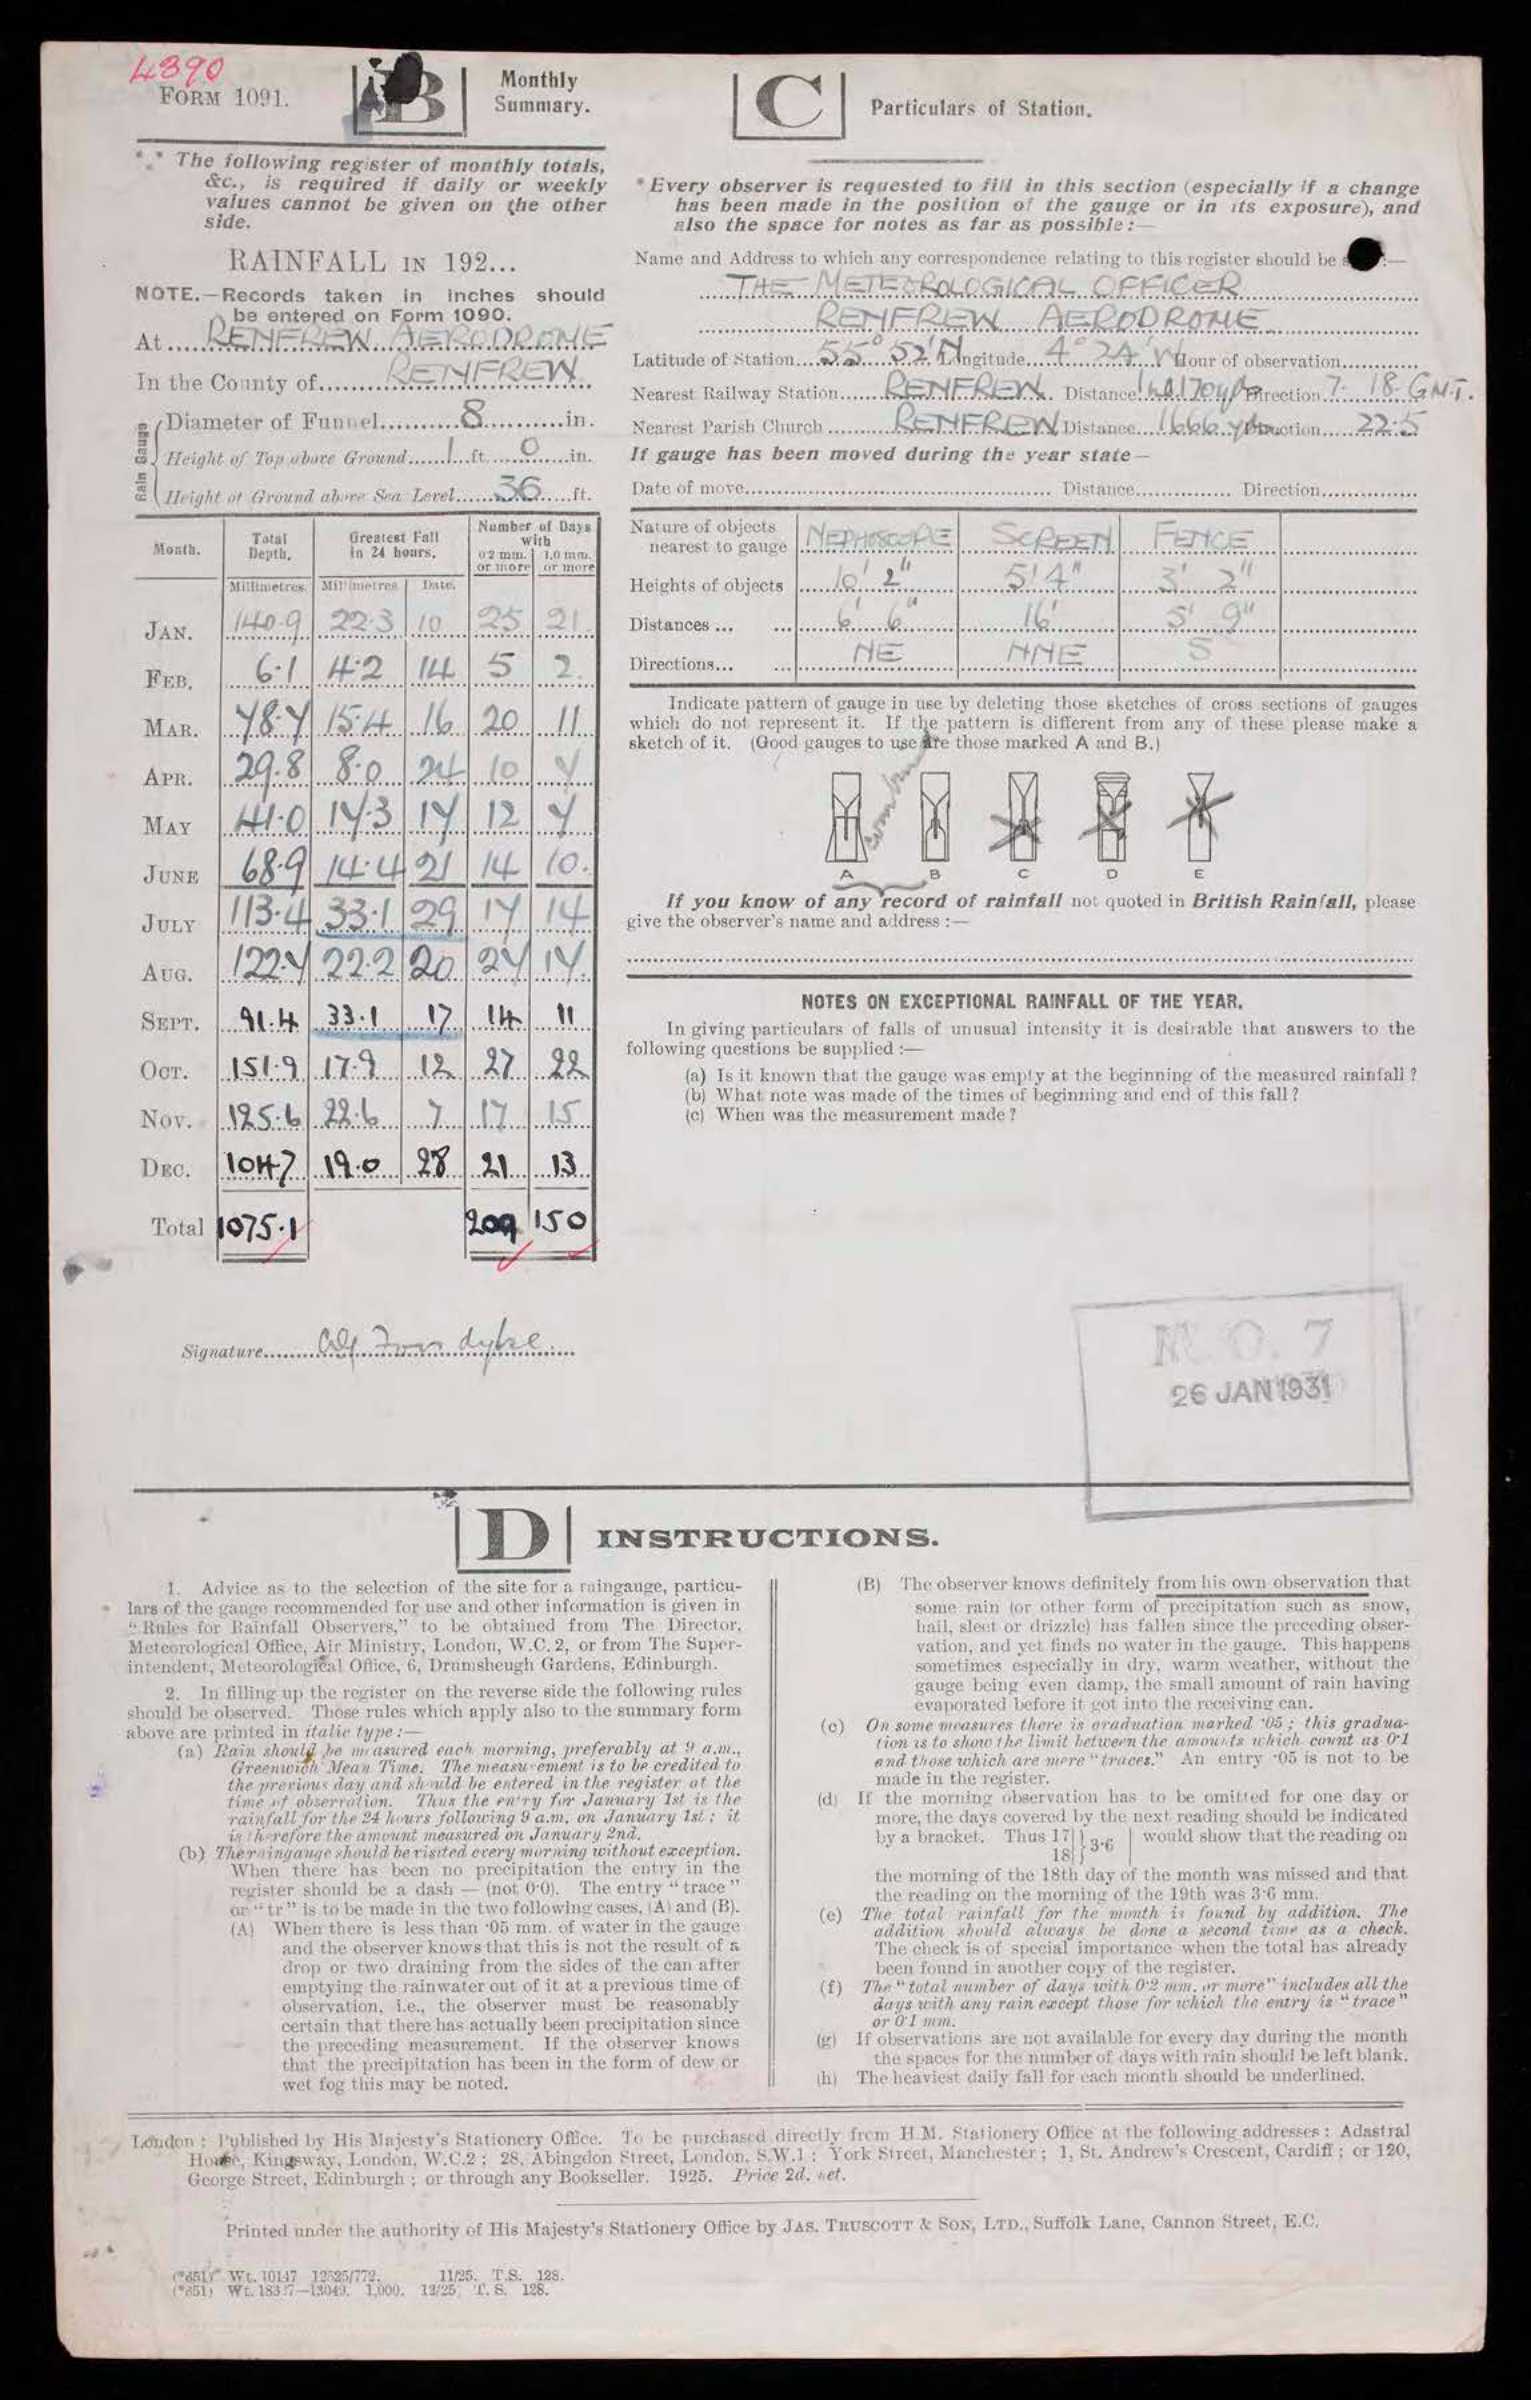 4390
FORM 1091.
B
Monthly
Summary.
*.* The following register of monthly totals,
&c., is required if daily or weekly
values cannot be given on the other
side.
RAINFALL IN 192...
NOTE.—Records taken in inches should
be entered on Form 1090.
At RENFREW AERODROME
In the County of RENFREW
Rain Gauge
Diameter of Funnel 8 in.
Height of Top above Ground 1 ft. 0 in.
Height of Ground above Sea Level 36 ft.
Month. Total Depth. Greatest Fall in 24 hours. Number of Days with
0·2 mm. or more 1.0 mm. or more
Millimetres. Millimetres Date.
JAN. 140.9 22.3 10 25 21
FEB. 6.1 4.2 14 5 2
MAR. 78.7 15.4 16 20 11
APR. 29.8 8.0 24 10 7
MAY 41.0 17.3 17 12 7
JUNE 68.9 14.4 21 14 10
JULY 113.4 33.1 29 17 14
AUG. 122.7 22.2 20 27 17
SEPT. 91.4 33.1 17 14 11
OCT. 151.9 17.9 12 27 22
NOV. 125.6 22.6 7 17 15
DEC. 104.7 19.0 28 21 13
Total 1075.1 209 150
Signature
C
Particulars of Station.
* Every observer is requested to fill in this section (especially if a change
has been made in the position of the gauge or in its exposure), and
also the space for notes as far as possible:—
Name and Address to which any correspondence relating to this register should be :—
THE METEOROLOGICAL OFFICER
RENFREW AERODROME
Latitude of Station 55° 52' N Longitude 4° 24' W Hour of observation
Nearest Railway Station RENFREW Distance Direction 7. 18. G.M.T.
Nearest Parish Church RENFREW Distance 1666 yds Direction 22.5
If gauge has been moved during the year state—
Date of move Distance Direction
Nature of objects nearest to gauge NEPHOSCOPE SCREEN FENCE
Heights of objects 10' 2" 5' 4" 3' 2"
Distances ... ... 6' 6" 16' 5' 9"
Directions... ... NE NNE S
Indicate pattern of gauge in use by deleting those sketches of cross sections of gauges
which do not represent it. If the pattern is different from any of these please make a
sketch of it. (Good gauges to use are those marked A and B.)
A B C D E
If you know of any record of rainfall not quoted in British Rainfall, please
give the observer's name and address :—
NOTES ON EXCEPTIONAL RAINFALL OF THE YEAR.
In giving particulars of falls of unusual intensity it is desirable that answers to the
following questions be supplied :—
(a) Is it known that the gauge was empty at the beginning of the measured rainfall ?
(b) What note was made of the times of beginning and end of this fall ?
(c) When was the measurement made ?
M.O. 7
26 JAN 1931
D INSTRUCTIONS.
1. Advice as to the selection of the site for a raingauge, particu-
lars of the gauge recommended for use and other information is given in
"Rules for Rainfall Observers," to be obtained from The Director,
Meteorological Office, Air Ministry, London, W.C.2, or from The Super-
intendent, Meteorological Office, 6, Drumsheugh Gardens, Edinburgh.
2. In filling up the register on the reverse side the following rules
should be observed. Those rules which apply also to the summary form
above are printed in italic type :—
(a) Rain should be measured each morning, preferably at 9 a.m.,
Greenwich Mean Time. The measurement is to be credited to
the previous day and should be entered in the register at the
time of observation. Thus the entry for January 1st is the
rainfall for the 24 hours following 9 a.m. on January 1st ; it
is therefore the amount measured on January 2nd.
(b) The raingauge should be visited every morning without exception.
When there has been no precipitation the entry in the
register should be a dash — (not 0·0). The entry "trace"
or "tr" is to be made in the two following cases, (A) and (B).
(A) When there is less than ·05 mm. of water in the gauge
and the observer knows that this is not the result of a
drop or two draining from the sides of the can after
emptying the rainwater out of it at a previous time of
observation, i.e., the observer must be reasonably
certain that there has actually been precipitation since
the preceding measurement. If the observer knows
that the precipitation has been in the form of dew or
wet fog this may be noted.
(B) The observer knows definitely from his own observation that
some rain (or other form of precipitation such as snow,
hail, sleet or drizzle) has fallen since the preceding obser-
vation, and yet finds no water in the gauge. This happens
sometimes especially in dry, warm weather, without the
gauge being even damp, the small amount of rain having
evaporated before it got into the receiving can.
(c) On some measures there is graduation marked ·05 ; this gradua-
tion is to show the limit between the amounts which count as 0·1
and those which are mere "traces." An entry ·05 is not to be
made in the register.
(d) If the morning observation has to be omitted for one day or
more, the days covered by the next reading should be indicated
by a bracket. Thus 17 18 } 3·6 would show that the reading on
the morning of the 18th day of the month was missed and that
the reading on the morning of the 19th was 3·6 mm.
(e) The total rainfall for the month is found by addition. The
addition should always be done a second time as a check.
The check is of special importance when the total has already
been found in another copy of the register.
(f) The "total number of days with 0·2 mm. or more" includes all the
days with any rain except those for which the entry is "trace"
or 0·1 mm.
(g) If observations are not available for every day during the month
the spaces for the number of days with rain should be left blank.
(h) The heaviest daily fall for each month should be underlined.
London : Published by His Majesty's Stationery Office. To be purchased directly from H.M. Stationery Office at the following addresses : Adastral
House, Kingsway, London, W.C.2 ; 28, Abingdon Street, London, S.W.1 ; York Street, Manchester ; 1, St. Andrew's Crescent, Cardiff ; or 120,
George Street, Edinburgh ; or through any Bookseller. 1925. Price 2d. net.
Printed under the authority of His Majesty's Stationery Office by JAS. TRUSCOTT & SON, LTD., Suffolk Lane, Cannon Street, E.C.
(*851) Wt. 10147 12525/772. 11/25. T.S. 128.
(*851) Wt. 18337—13049. 1,000. 12/25 T. S. 128.